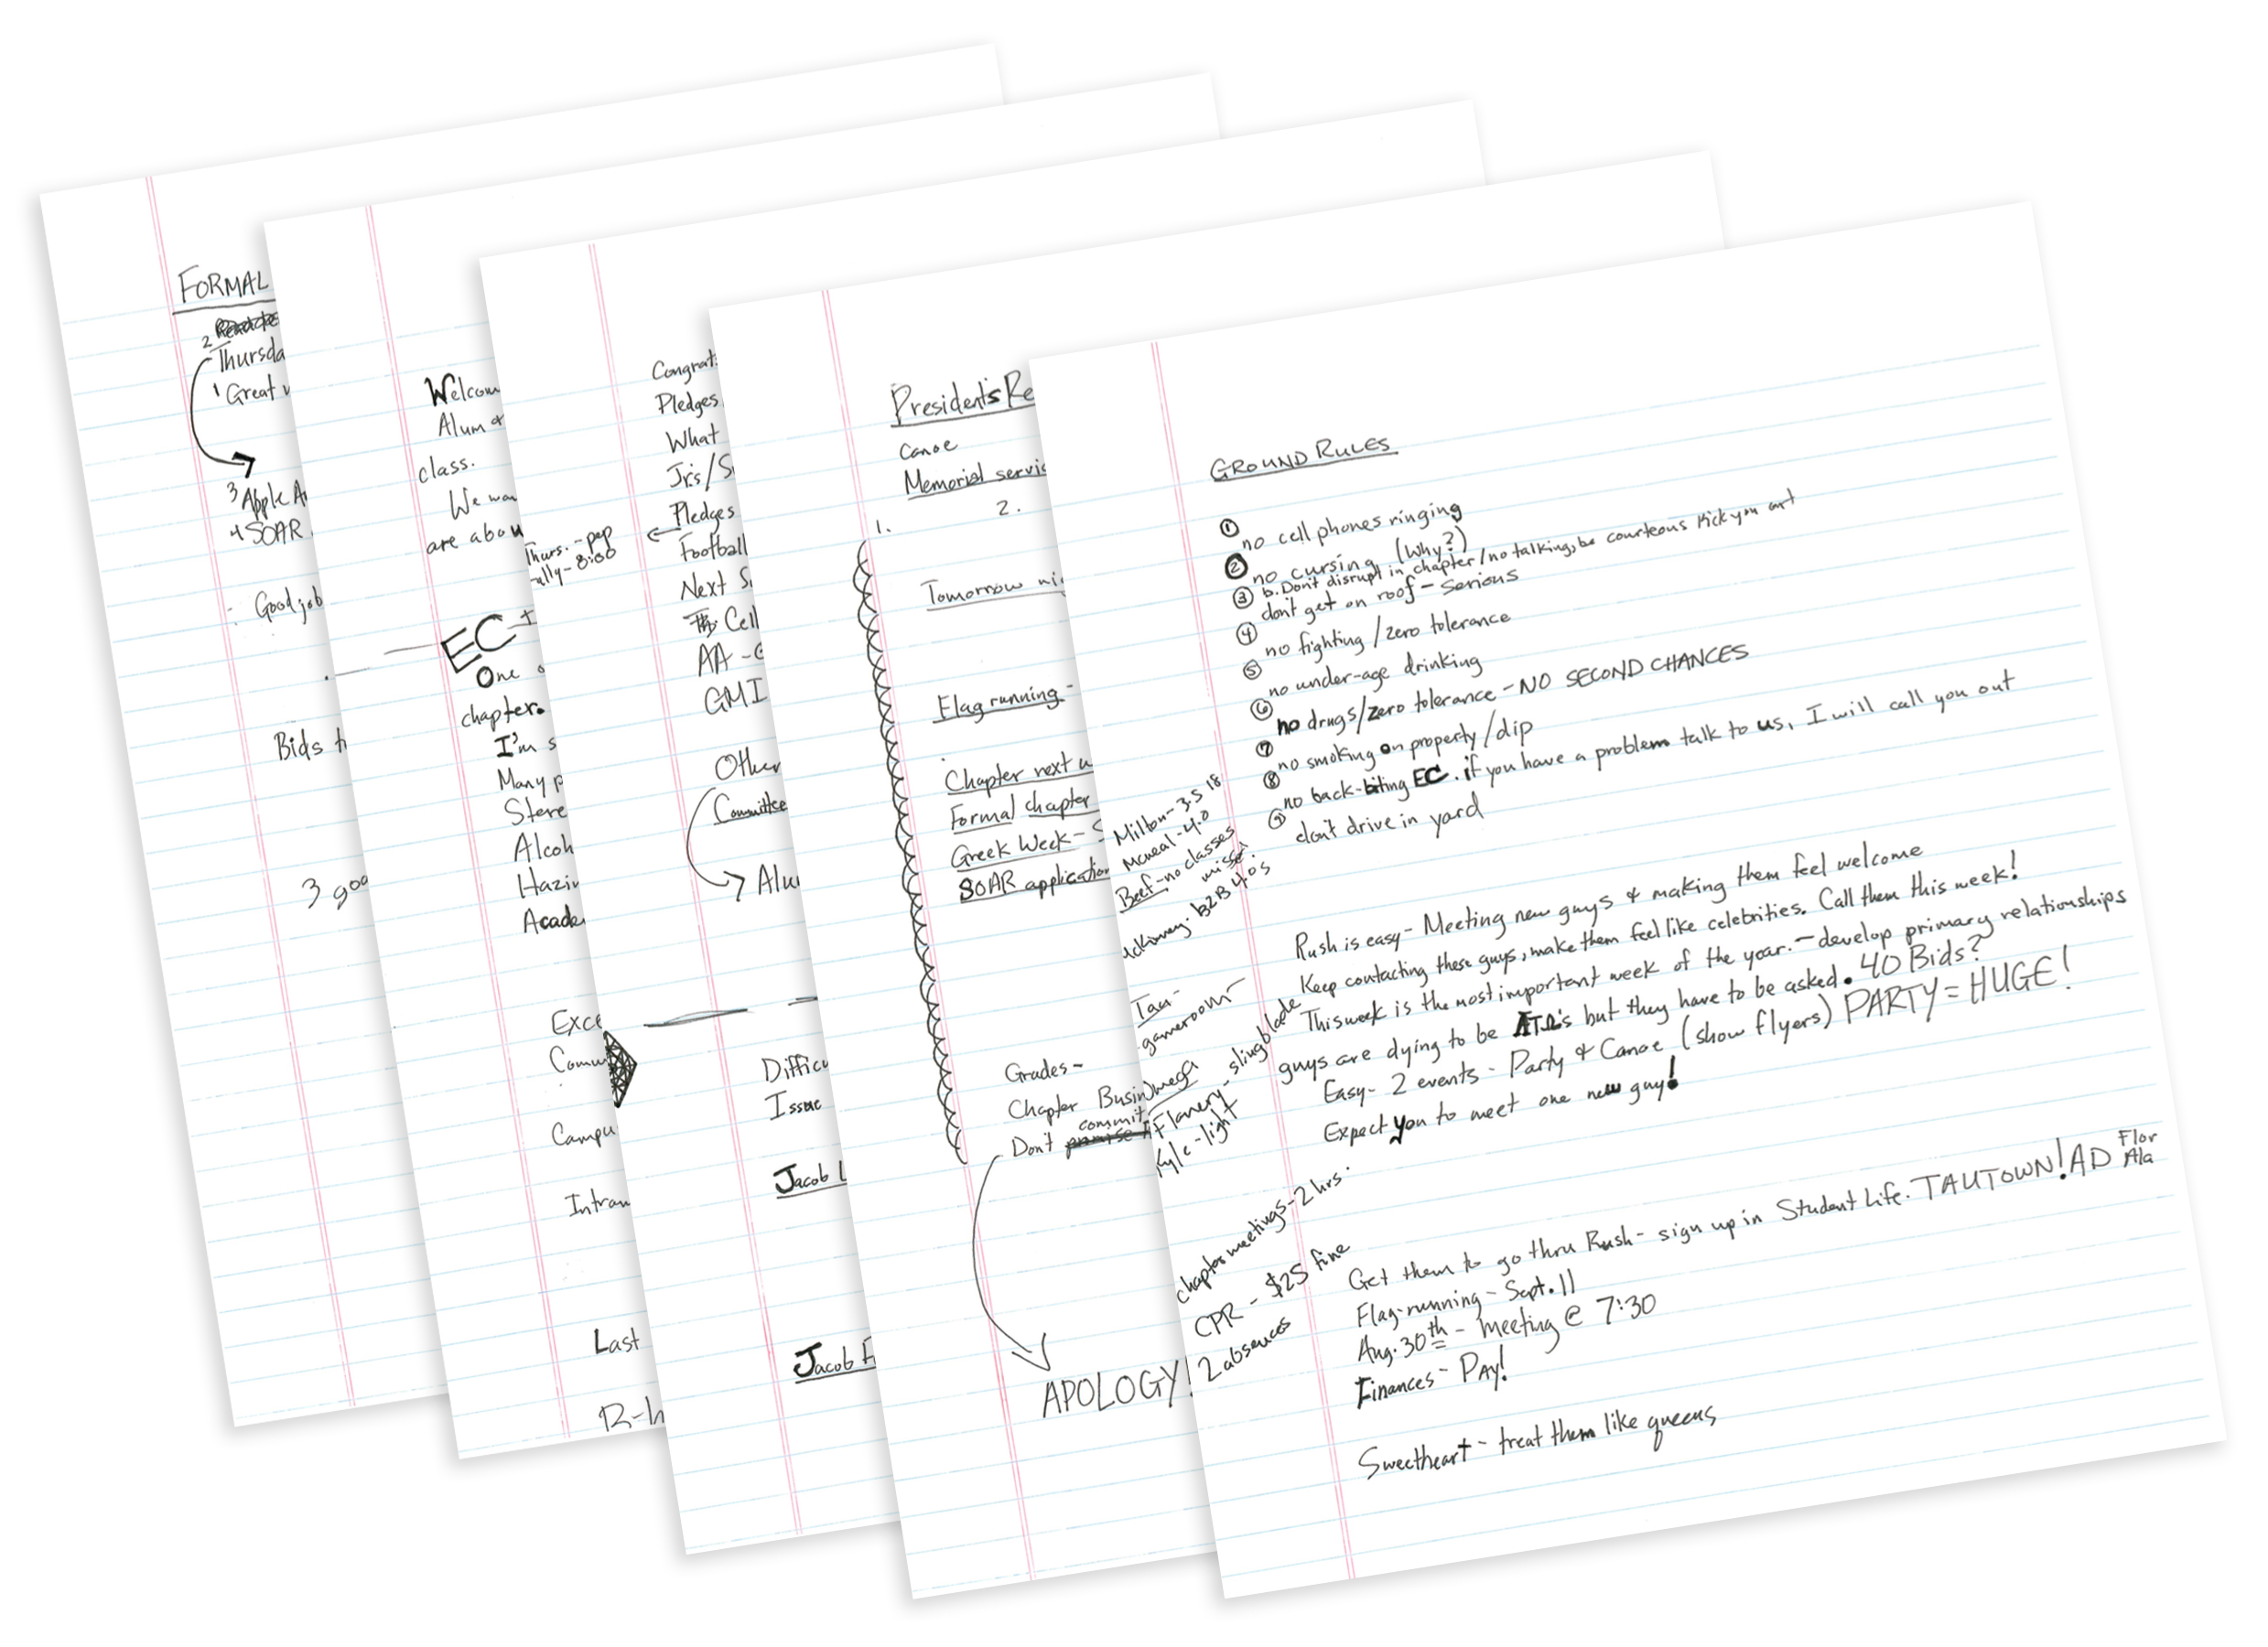 FORMAL
2
Thursda
1 Great
3 Apple A
4 SOAR
Good job
Bids t
3 goo
Welcom
Alum &
class.
We wan
are abou
EC
One o
chapter.
I'm s
Many p
Stere
Alcoh
Hazin
Acade
Exce
Commu
Campu
Intram
Last
R-h
Congrat
Pledges
What
Jr's/S
Pledges
Thurs. - pep
rally - 8:00
Football
Next S
Cell
AA - 
GMI
Other
Committee
Alu
Difficu
Issue
Jacob L
Jacob F
President's Re
Canoe
Memorial servic
1.
2.
Tomorrow ni
Flag running -
Chapter next w
Formal chapter
Greek Week - S
SOAR application
Grades -
Chapter Busin
commit
Don't promise
APOLOGY!
GROUND RULES
① no cell phones ringing
② no cursing (Why?)
b. Don't disrupt in chapter/no talking, be courteous kick you out
③ don't get on roof - serious
④ no fighting/zero tolerance
⑤ no under-age drinking
⑥ no drugs/zero tolerance - NO SECOND CHANCES
⑦ no smoking on property/dip
⑧ no back-biting EC. if you have a problem talk to us, I will call you out
⑨ don't drive in yard
Milton - 3.5 18
Mcneal - 4.0
Beef - no classes
missed
McKinney - b2B 4.0s
Rush is easy - Meeting new guys & making them feel welcome
Keep contacting these guys, make them feel like celebrities. Call them this week!
This week is the most important week of the year. - develop primary relationships
guys are dying to be ATΩ's but they have to be asked. 40 Bids?
Easy - 2 events - Party & Canoe (show flyers) PARTY = HUGE!
Expect you to meet one new guy!
Tau -
gameroom -
Omega
Flanery - slingblade
Kyle - light
chapter meetings - 2 hrs.
CPR - $25 fine
2 absences
Get them to go thru Rush - sign up in Student Life. TAUTOWN! AD Flor
Ala
Flag-running - Sept. 11
Aug. 30th - Meeting @ 7:30
Finances - PAY!
Sweetheart - treat them like queens